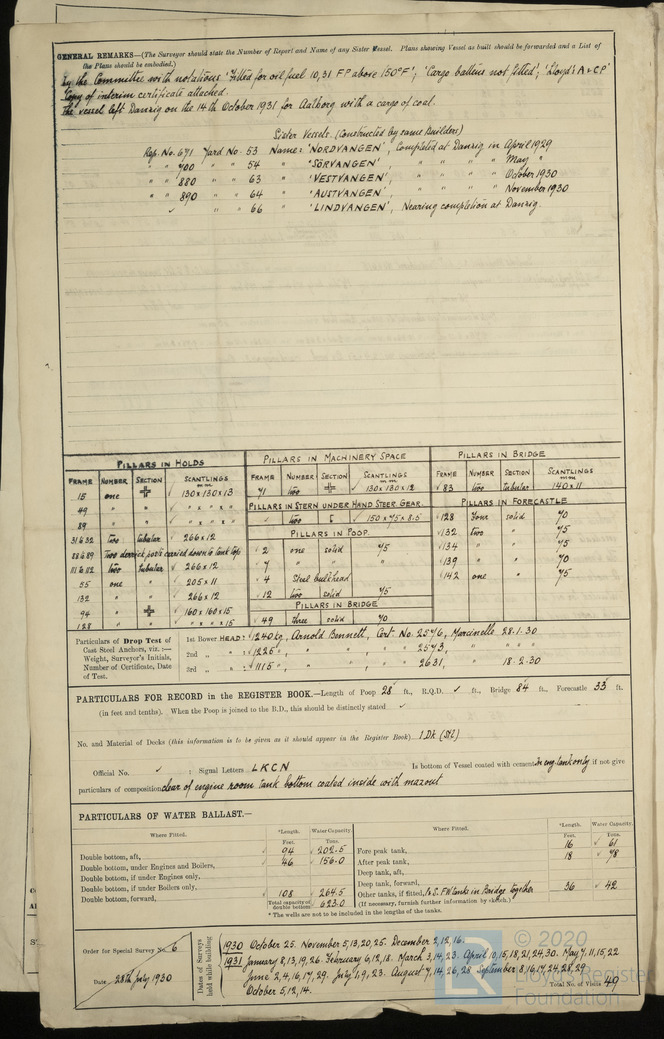 GENERAL REMARKS—(The Surveyor should state the Number of Report and Name of any Sister Vessel. Plans showing Vessel as built should be forwarded and a List of
the Plans should be embodied.)
by the Committee with notations 'Fitted for oil fuel 10,31 FP above 150°F'; 'Cargo battens not fitted'; 'Lloyd's A & CP'
Copy of interim certificate attached.
The vessel left Danzig on the 14th October 1931 for Aalborg with a cargo of coal.
Sister Vessels. (Constructed by same Builders)
Rep. No. 671 Yard No. 53 Name: 'NORDVANGEN', Completed at Danzig in April 1929
" " 700 " " 54 " 'SÖRVANGEN', " " " " May "
" " 880 " " 63 " 'VESTVANGEN' " " " " October 1930
" " 890 " " 64 " 'AUSTVANGEN' " " " " November 1930
✓ " " 66 " 'LINDVANGEN', Nearing completion at Danzig.
PILLARS IN HOLDS
FRAME NUMBER SECTION SCANTLINGS m.m.
15 one ✓ 130 x 130 x 13
49 " " ✓ " x " x "
89 " " " x " x "
31 & 32 two tubular ✓ 266 x 12
88 & 89 Two derrick posts carried down to tank top
111 & 112 two tubular ✓ 266 x 12
55 one " ✓ 205 x 11
132 " " 266 x 12
94 " ✓ 160 x 160 x 15
128 " " x " x 15
PILLARS IN MACHINERY SPACE
FRAME NUMBER SECTION SCANTLINGS m.m.
71 two ✓ 130 x 130 x 12
PILLARS IN STERN UNDER HAND STEER GEAR.
✓ two ✓ 150 x 75 x 8.5
PILLARS IN POOP.
✓ 2 one solid 75
✓ 7 " " "
✓ 4 Steel bulkhead
✓ 12 two solid 75
PILLARS IN BRIDGE
✓ 49 three solid 70
PILLARS IN BRIDGE
FRAME NUMBER SECTION SCANTLINGS m.m.
✓ 83 two tubular 140 x 11
PILLARS IN FORECASTLE
✓ 128 Four solid 70
✓ 132 two " 75
✓ 134 " " 75
✓ 139 " " 70
✓ 142 one " 75
Particulars of Drop Test of
Cast Steel Anchors, viz. :—
Weight, Surveyor's Initials,
Number of Certificate, Date
of Test.
1st Bower HEAD: ✓ 1240 kg, Arnold Bennett, Cert No. 2576, Marcinelle 28-1-30
2nd " " : ✓ 1225 ", " " " " 2573, " " "
3rd " " : ✓ 1115 ", " " " " 2631, " 18-2-30
PARTICULARS FOR RECORD in the REGISTER BOOK.—Length of Poop 28 ft., R.Q.D. ✓ ft., Bridge 84 ft., Forecastle 33 ft.
(in feet and tenths). When the Poop is joined to the B.D., this should be distinctly stated ✓
No. and Material of Decks (this information is to be given as it should appear in the Register Book) 1 Dk (Stl)
Official No. ✓ : Signal Letters LKCN Is bottom of Vessel coated with cement in eng. tank only if not give
particulars of composition clear of engine room tank bottom coated inside with mazout
PARTICULARS OF WATER BALLAST.—
Where Fitted. *Length. Feet. Water Capacity. Tons.
Double bottom, aft, 94 ✓ 202.5
Double bottom, under Engines and Boilers, 46 ✓ 156.0
Double bottom, if under Engines only,
Double bottom, if under Boilers only,
Double bottom, forward, 108 ✓ 264.5
Total capacity of double bottom 623.0
Where Fitted. *Length. Feet. Water Capacity. Tons.
Fore peak tank, 16 ✓ 61
After peak tank, 18 ✓ 78
Deep tank, aft,
Deep tank, forward,
Other tanks, if fitted, P & S. FW tanks in Bridge together 36 ✓ 42
(If necessary, furnish further information by sketch.)
* The wells are not to be included in the lengths of the tanks.
Order for Special Survey No. 6
Date 28th July 1930
Dates of Surveys held while building
1930 October 25. November 5,13,20,25. December 2,12,16.
1931 January 8,13,19,26. February 4,12,18. March 3,14,23. April 10,15,18,21,24,30. May 7,11,15,22
June 2,4,16,17,29. July 1,9,23. August 7,14,26,28 September 8,16,17,24,28,29
October 5,12,14.
Total No. of Visits 49
© 2020
Lloyd's Register
Foundation
LR